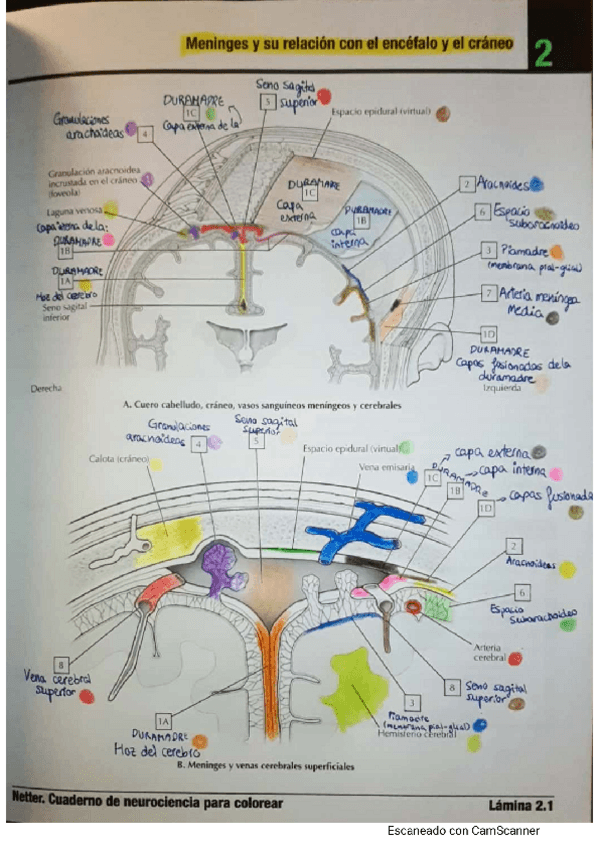 Meninges y su relación con el encéfalo y el cráneo
2
Seno sagital
superior
5
DURAMADRE
1C
Capa externa de la
Granulaciones
aracnoideas
4
Espacio epidural (virtual)
Granulación aracnoidea
incrustada en el cráneo
(foveola)
Laguna venosa
Capa interna de la:
DURAMADRE
1B
DURAMADRE
1A
Hoz del cerebro
Seno sagital
inferior
DURAMADRE
1C
Capa
externa
DURAMADRE
1B
capa
interna
2 Aracnoides
6 Espacio
subaracnoideo
3 Piamadre
(membrana pial-glial)
7 Arteria meníngea
Media
1D
DURAMADRE
Capas fusionadas de la
duramadre
Derecha
Izquierda
A. Cuero cabelludo, cráneo, vasos sanguíneos meníngeos y cerebrales
Granulaciones
aracnoideas
4
Seno sagital
superior
5
Espacio epidural (virtual)
Calota (cráneo)
Vena emisaria
capa externa
DURAMADRE
1C
capa interna
1B
1D
capas fusionada
2
Aracnoideas
6
Espacio
subaracnoideo
Arteria
cerebral
8
Vena cerebral
superior
8 Seno sagital
superior
3
Piamadre
(membrana pial-glial)
Hemisferio cerebral
1A
DURAMADRE
Hoz del cerebro
B. Meninges y venas cerebrales superficiales
Netter. Cuaderno de neurociencia para colorear
Lámina 2.1
Escaneado con CamScanner